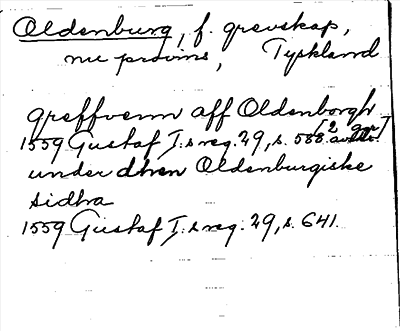 Oldenburg, f. grevskap,
nu provins, Tyskland
greffvenn aff Oldenborgh
1559 Gustaf I:s reg. 29, s. 588. [2 ggr]
under dhen Oldenburgiske
sidha
1559 Gustaf I:s reg. 29, s. 641.